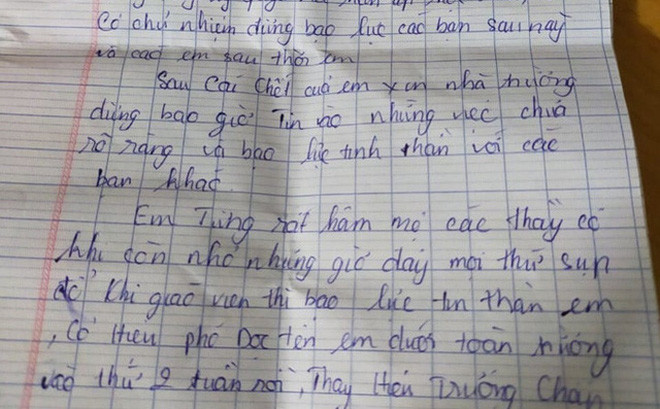 Cô chủ nhiệm đừng bạo lực các bạn sau này
và các em sau thời em
Sau cái chết của em xin nhà trường
đừng bao giờ tin vào những việc chưa
rõ ràng và bạo lực tinh thần với các
bạn khác.
Em Từng rất hâm mộ các thầy cô
khi còn nhỏ nhưng giờ đây mọi thứ sụp
đổ khi giáo viên thì bạo lực tin thần em
, Cô Hiệu phó Đọc tên em dưới toàn trường
vào thứ 2 tuần rồi, Thầy Hiệu Trưởng Chan